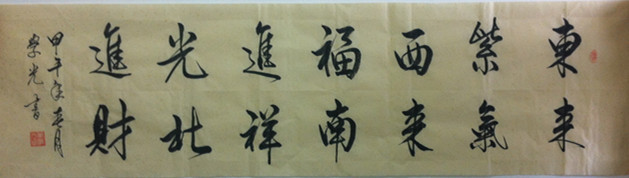 東来
紫氣
西来
福南
進祥
光北
進財
甲午年春月
光書